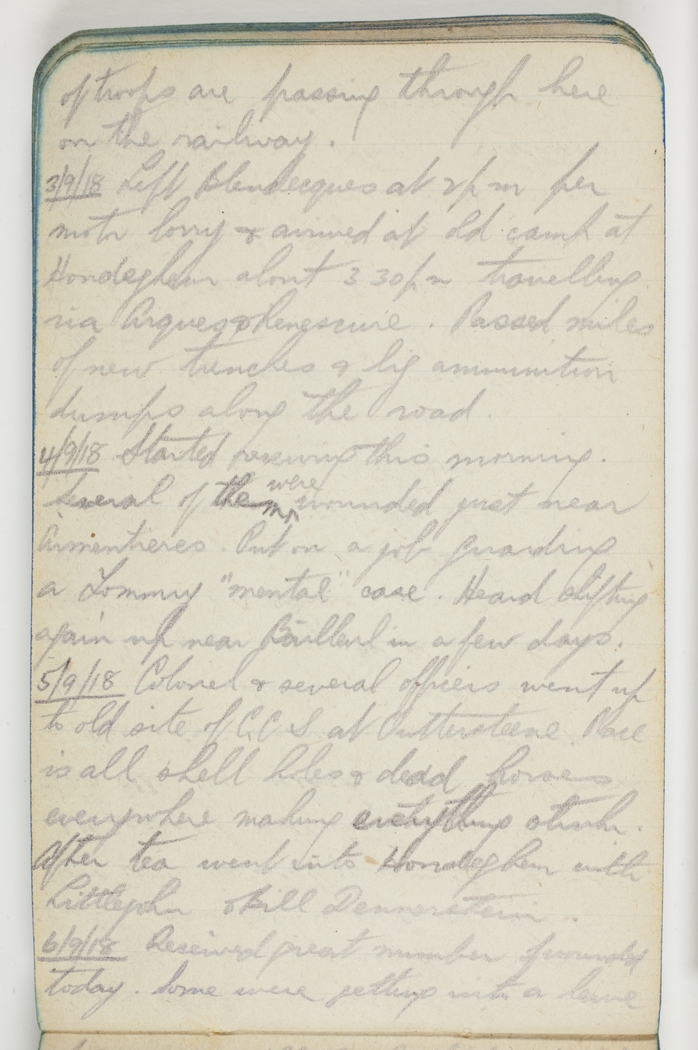 of troops are passing through here
on the railway.
3/9/18 Left Blendecques at 2 pm per
motor lorry & arrived at old camp at
Hondeghem about 3 30 pm travelling
via Arques & Renescure. Passed miles
of new trenches & big ammunition
dumps along the road.
4/9/18 Started receiving this morning.
Several of them were wounded just near
Armentieres. Put on a job guarding
a Tommy "mental" case. Heard shifting
again up near Bailleul in a few days.
5/9/18 Colonel & several officers went up
to old site of C.C.S. at Outtersteene. Place
is all shell holes & dead horses
everywhere making everything stink.
After tea went into Hondeghem with
Littlejohn & Bill Dennerstein.
6/9/18 Received great number of wounded
today. Some were getting with a